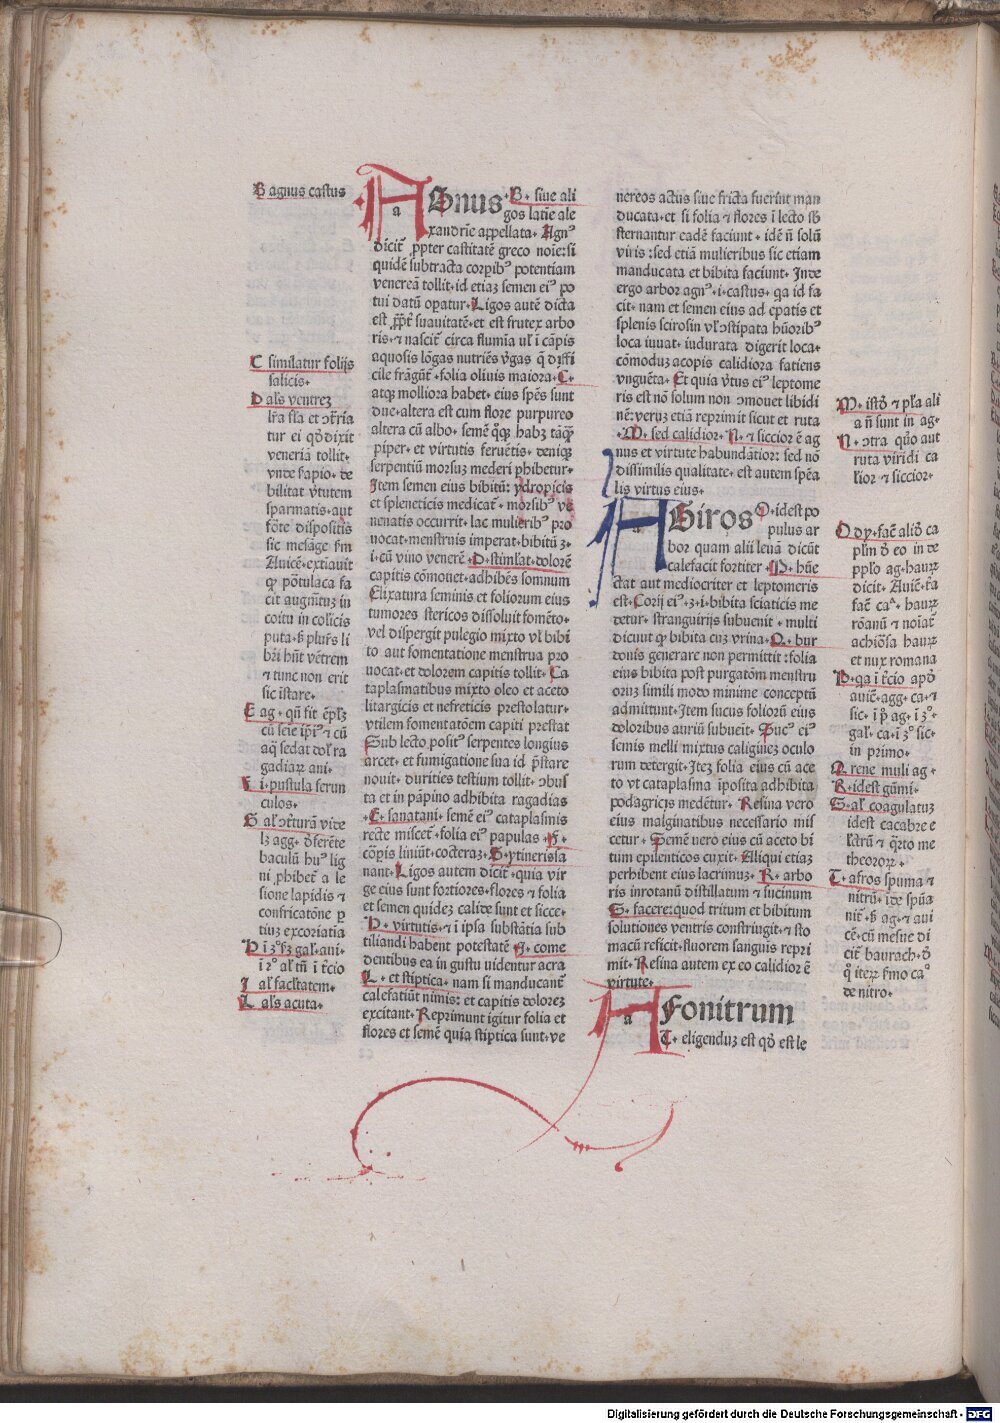 B agnus castus
C similatur folijs
salicis.
D als ventrez
tur ei qđ dixit
veneria tollit.
vnde sapio. de
bilitat v̓tutem
sparmatis. aut
fōte dispositis
sic mesăge
Auicē. extiauit
qꝫ pōtulaca fa
coitu in colicis
puta.
bẜi hñt vētrem
⁊ tunc non erit
sic istare.
E ag. qñ fit
aq̄ sedat
gadiarꝫ ani.
F i. pustula serun
culos.
G
baculū huꝰ lig
ni ꝓhibet a le
sione lapidis ⁊
confricatōne ꝑ
tiuz excoriatia
I al facl̓tatem.
L als acuta.
AGnus. B. siue ali
a
gos latīe ale
xandrīe appellata. Agnꝰ
dicit ꝓpter castitatē greco noīe: si
quidē subtracta corpibꝰ potentiam
venereā tollit. id etiaꝫ semen eiꝰ po
tui datū opatur. Ligos autē dicta
est ꝓpt̄ suauitatē. et est frutex arbo
ris. ⁊ nascit circa flumīa vl̓ i cāpis
aquosis lōgas nutriēs v̓gas q̄ diffi
cile frāgūt. folia oliuis maiora. C.
atqꝫ molliora habet. eius spēs sunt
due. altera est cum flore purpureo
altera cū albo. semē qꝫ habꝫ tāqꝫ
piper. et virtutis feruētis. deniqꝫ
serpentiū morsuꝫ mederi phibetur.
Item semen eius bibitū: ydropicis
et spleneticis medicat. morsibꝰ ve
nenatis occurrit. lac mulieribꝰ pro
uocat. menstruis imperat. bibitū ʒ.
i. cū vino venerē. D. stimlat. dolorē
capitis cōmouet. adhibēs somnum
Elixatura seminis et foliorum eius
tumores stericos dissoluit fomēto.
vel dispergit pulegio mixto vl̓ bibi
to aut somentatione menstrua pro
uocat. et dolorem capitis tollit. Ca
taplasmatibus mixto oleo et aceto
litargicis et nefreticis prestolatur.
vtilem fomentatōem capiti prestat
Sub lecto positꝰ serpentes longius
arcet. et fumigatione sua id p̄stare
nouit. durities testium tollit. ↄbus
ta et in pāpino adhibita ragadias
. E. sanatani. semē eiꝰ cataplasmis
recte miscet̄. folia eiꝰ papulas. F.
cōpris liniūt. cocteraꝫ. G. ytinerisla
nant. Ligos autem dicit. quia vir
ge eius sunt fortiores. flores ⁊ folia
et semen quideꝫ calide sunt et sicce.
D. virtutis. ⁊ i ipsa substātia sub
tiliandi habent potestatē. I. come
dentibus ea in gustu videntur acra
L. et stiptica. nam si manducant̄
calefatiūt nimis: et capitis doloreꝫ
excitant. Reprimunt igitur folia et
flores et semē quia stiptica sunt. ve
nereos actus siue fricta fuerint man
ducata. et si folia ⁊ flores i lecto sb̓
sternantur eadē faciunt. idē n̄ solū
viris: sed etiā mulieribus sic etiam
manducata et bibita faciunt. Inde
ergo arbor agnꝰ. i. castus. qa id fa
cit. nam et semen eius ad epatis et
splenis scirosin vl̓ ↄstipata hūoribꝰ
loca iuuat. iudurata digerit loca.
cōmoduꝫ acopis calidiora fatiens
vnguēta. Et quia v̓tus eiꝰ leptome
ris est nō solum non ↄmouet libidi
nē: veruꝫ etiā reprimit sicut et ruta
. M. sed calidior. N. ⁊ siccior ē ag
nus et virtute habundātior: sed nō
dissimilis qualitate. est autem spēa
lis virtus eius.
AGiros O. idest po
a
pulus ar
bor quam alii leuā dicūt
calefacit fortiter. P. hūe
ctat aut mediocriter et leptomeris
est. Corij eiꝰ. ʒ. i. bibita sciaticis me
detur. stranguirijs subuenit. multi
dicunt qꝫ bibita cuꝫ vrina. Q. bur
donis generare non permittit: folia
eius bibita post purgatōm menstru
oruꝫ simili modo minime conceptū
admittunt. Item sucus foliorū eius
doloribus auriū subueit. Sucꝰ eiꝰ
semis melli mixtus caligineꝫ oculo
rum detergit. Iteꝫ folia eius cū ace
to vt cataplasma īposita adhibita
podagricis medētur. Resina vero
eius malginatibus necessario mis
cetur. Semē vero eius cū aceto bi
tum epilenticos cuxit. Aliqui etiaꝫ
perhibent eius lacrimuꝫ. R. arbo
ris inrotanū distillatum ⁊ sucinum
S. facere: quod tritum et bibitum
solutiones ventris constringit. ⁊ sto
macū reficit. fluorem sanguis repri
mit. Resina autem ex eo calidior ē
virtute.
AFonitrum
a
T. eligenduꝫ est qđ est le
a n̄ sunt in ag.
N. ↄtra qūo aut
ruta viridi ca
lior ⁊ siccior.
ppl̓o ag. haurꝫ
dicit. Auic̄.
et nux romana
in primo.
Q. rene muli ag.
R. idest gūmi.
S. al̓ coagulatuꝫ
idest cacabre e
theororꝫ.
T. afros spuma ⁊
nitrū. ide spūa
cē. cū mesue di
cit̄ baurach.
de nitro.
Digitalisierung gefördert durch die Deutsche Forschungsgemeinschaft - DFG